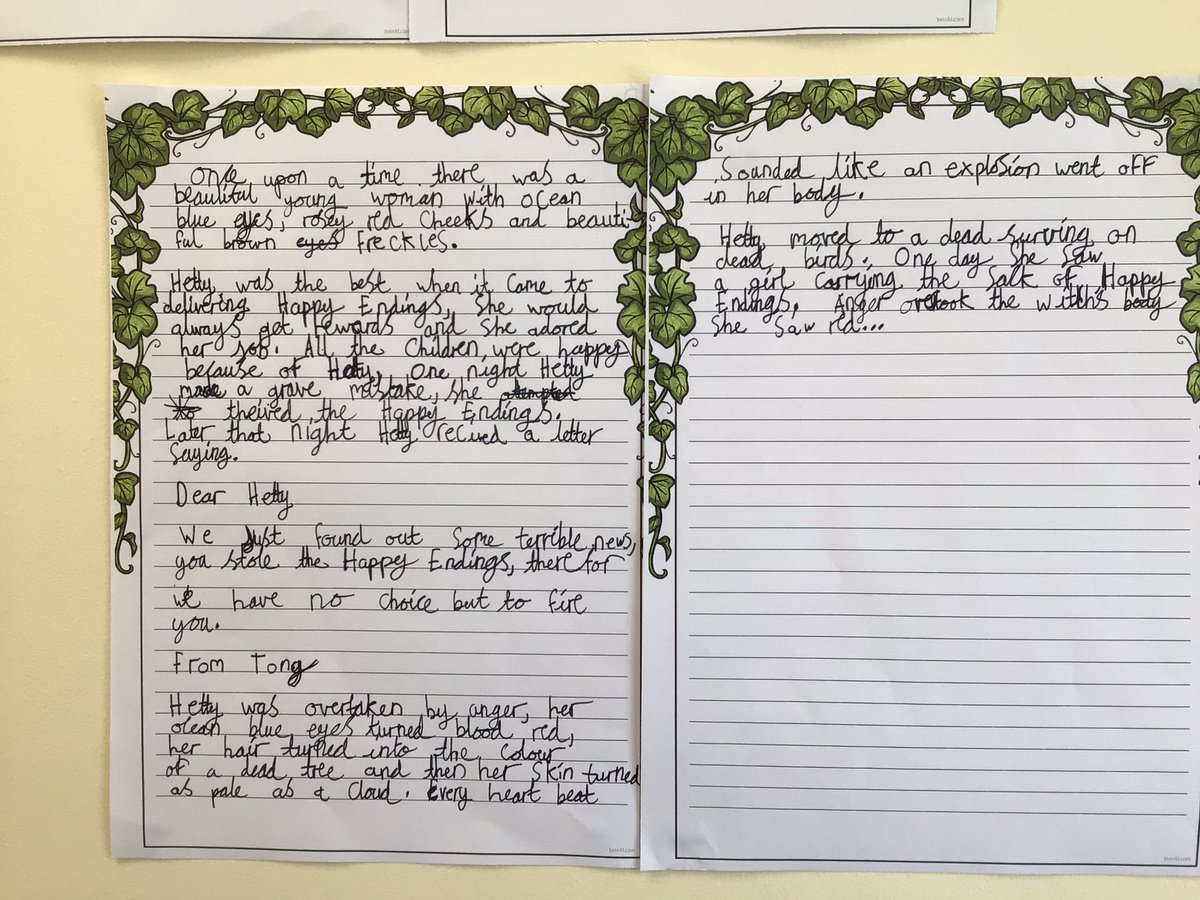 twinkl.com
twinkl.com
Once upon a time there was a
beautiful young woman with ocean
blue eyes, rosey red cheeks and beauti-
ful brown eyes freckles.
Hetty was the best when it came to
delivering Happy Endings, she would
always get rewards and she adored
her job. All the children were happy
because of Hetty. One night Hetty
made a grave mistake, she attempted
to theived the Happy Endings.
Later that night Hetty recived a letter
saying.
Dear Hetty
We Just found out some terrible news,
you stole the Happy Endings, there for
we have no choice but to fire
you.
From Tong
Hetty was overtaken by anger, her
ocean blue eyes turned blood red,
her hair turned into the colour
of a dead tree and then her skin turned
as pale as a cloud. Every heart beat
twinkl.com
Sounded like an explosion went off
in her body.
Hetty moved to a dead surviving on
dead birds. One day she saw
a girl carrying the sack of Happy
Endings. Anger overtook the withs body
she saw red...
twinkl.com